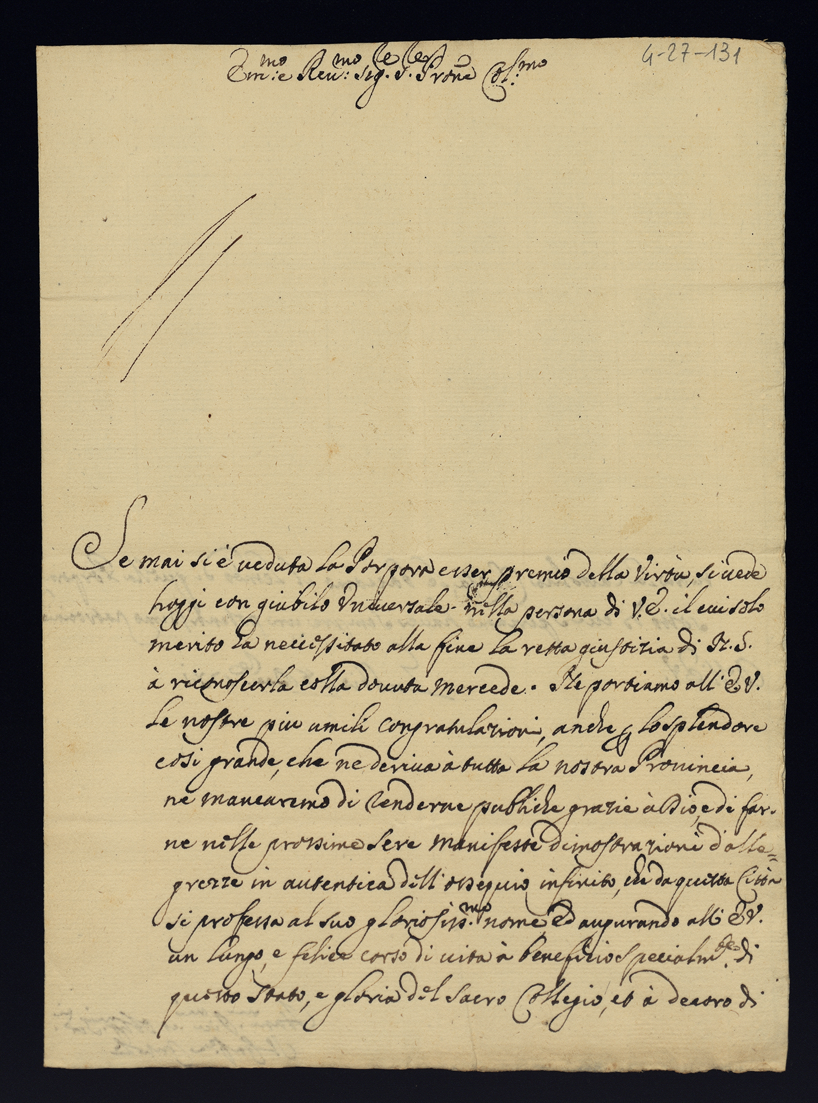 Em:mo e Reu:mo Sig.r e Prone Col.mo
4-27-131
Se mai si è ueduta la Porpora esser premio della Virtù, si uede
hoggi con giubilo Vniuersale nella persona di V.E. il cui solo
merito ha necessitato alla fine la retta giustizia di N.S.
à riconoscerla colla douuta mercede. Ne portiamo all' E.V.
le nostre piu umili congratulazioni, anche p lo splendore
cosi grande, che ne deriua à tutta la nostra Prouincia,
ne mancaremo di renderne publiche grazie à Dio, e di far-
ne nelle prossime sere manifeste dimostrazioni d'alle=
grezze in autentica dell'ossequio infinito, che da questa Città
si professa al suo gloriosiss.mo nome, Ed augurando all' E.V.
un lungo, e felice corso di uita à beneficio specialm.te di
questo Stato, e gloria del Sacro Collegio, et à decoro di